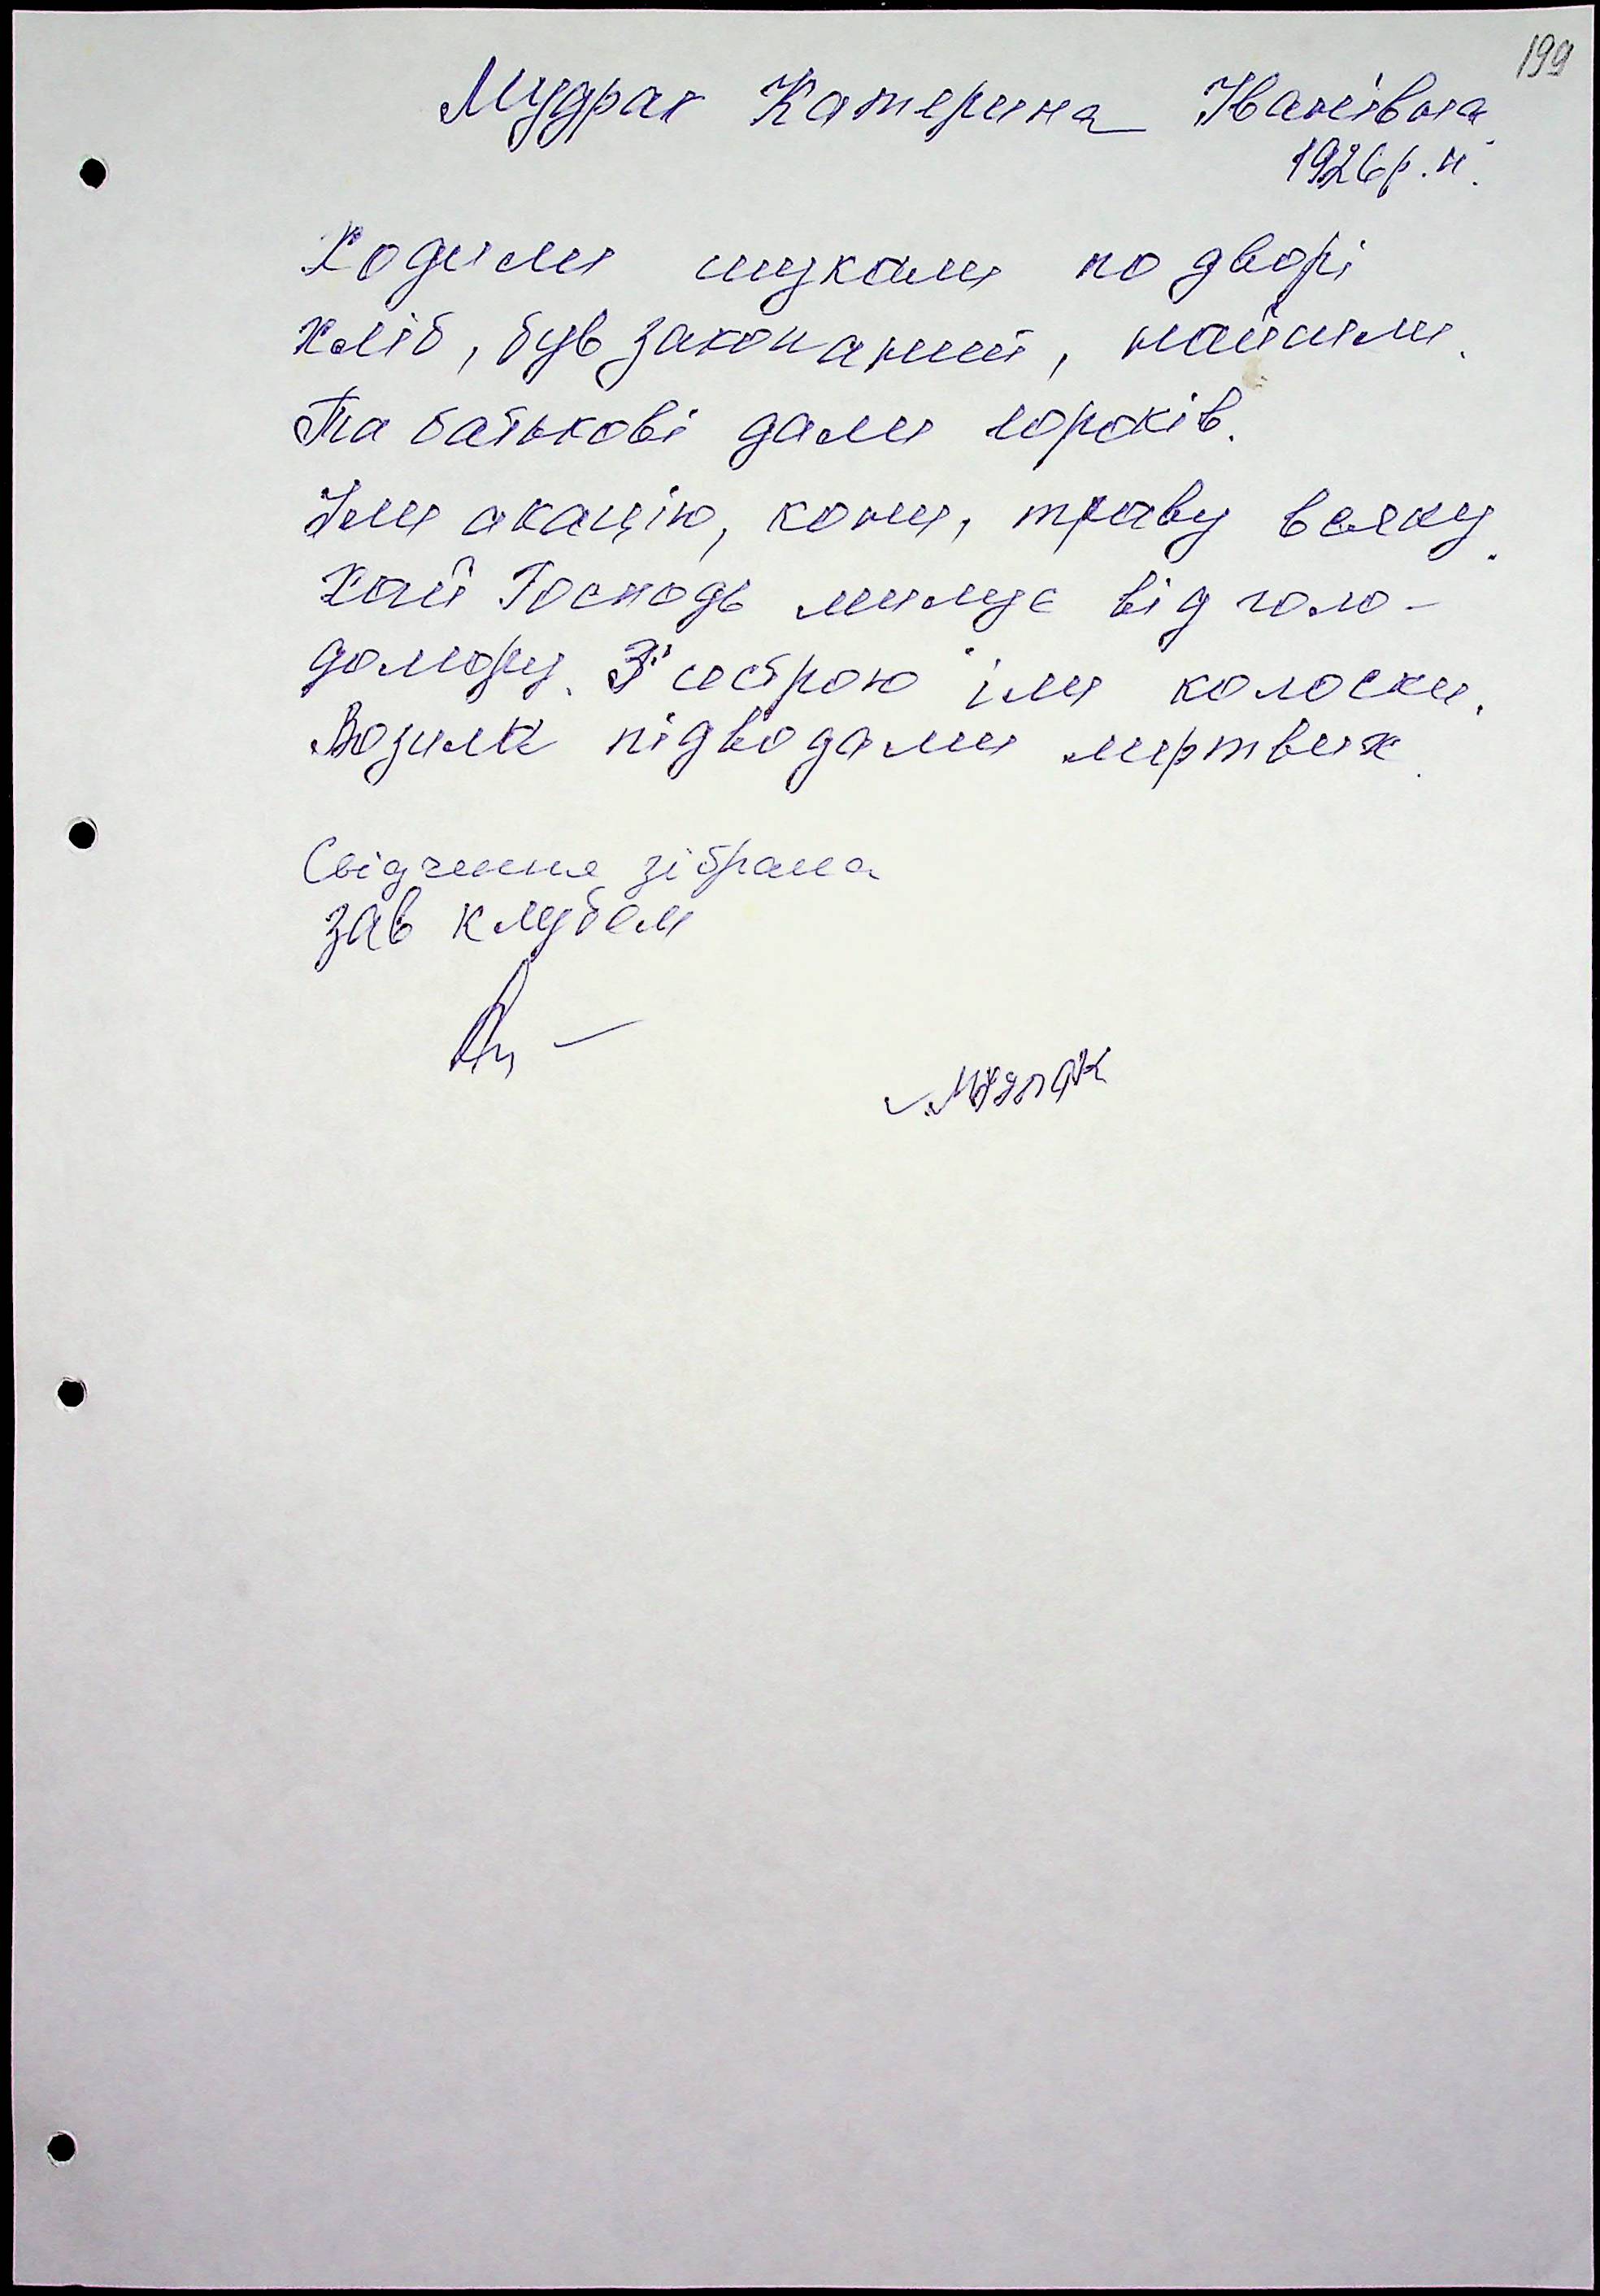 199
Мудрак Катерина Іванівна
1926 р. н.
Ходили шукали по дворі
хліб, був закопаний, найшли.
Та батькові дали 10 років.
Їли акацію, кони, траву всяку.
Хай Господь милує від голо-
домору. З сестрою їли колоски.
Возили підводами мертвих.
Свідчення зібрала
зав клубом
Мудрак